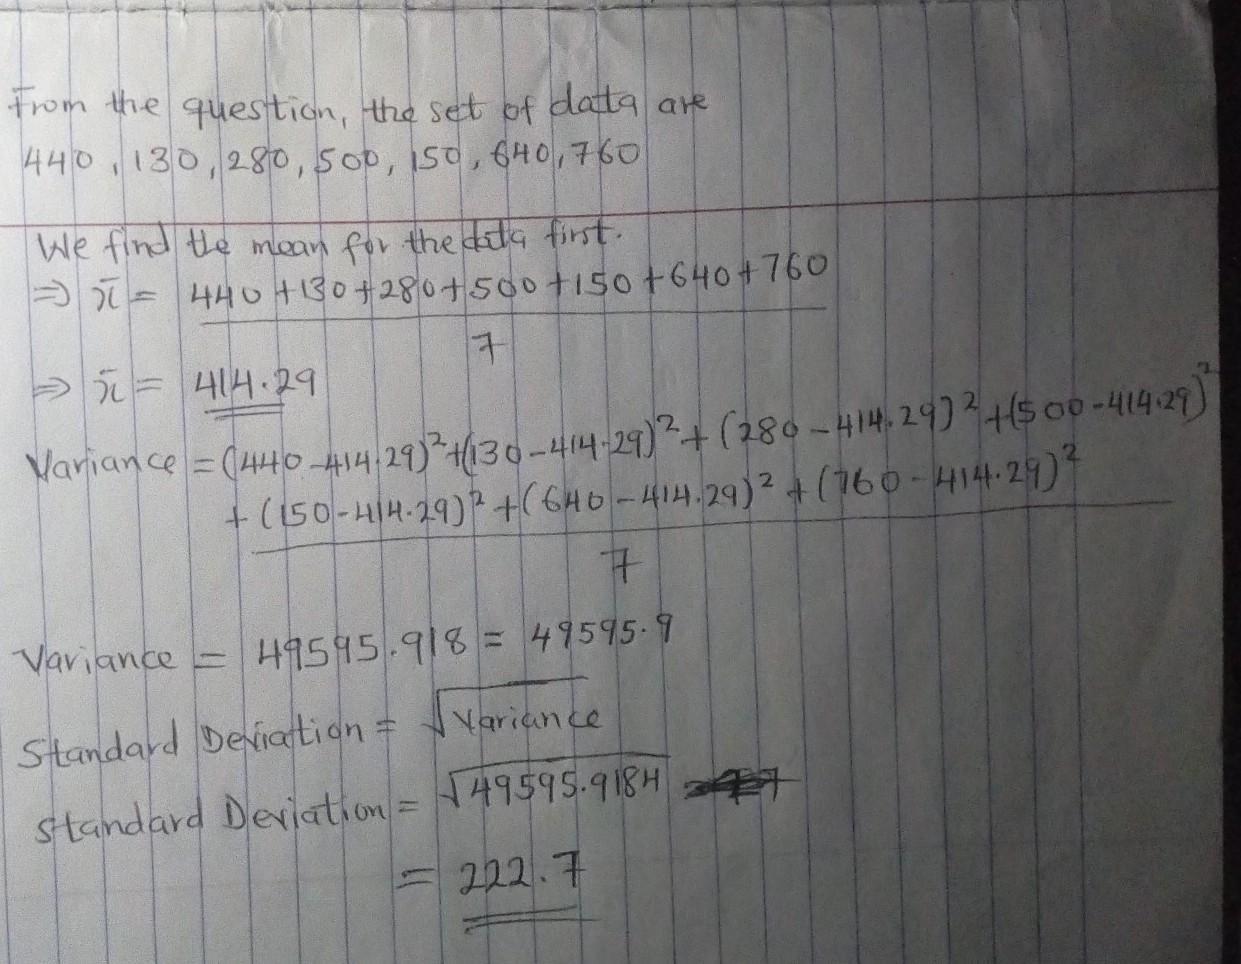 From the question, the set of data are
440, 130, 280, 500, 150, 640, 760
We find the mean for the data first.
⇒ x̄ = 440+130+280+500+150+640+760
7
⇒ x̄ = 414.29
Variance = (440-414.29)²+(130-414.29)²+(280-414.29)²+(500-414.29)²
+(150-414.29)²+(640-414.29)²+(760-414.29)²
7
Variance = 49595.918 = 49595.9
Standard Deviation = √Variance
Standard Deviation = √49595.9184
= 222.7